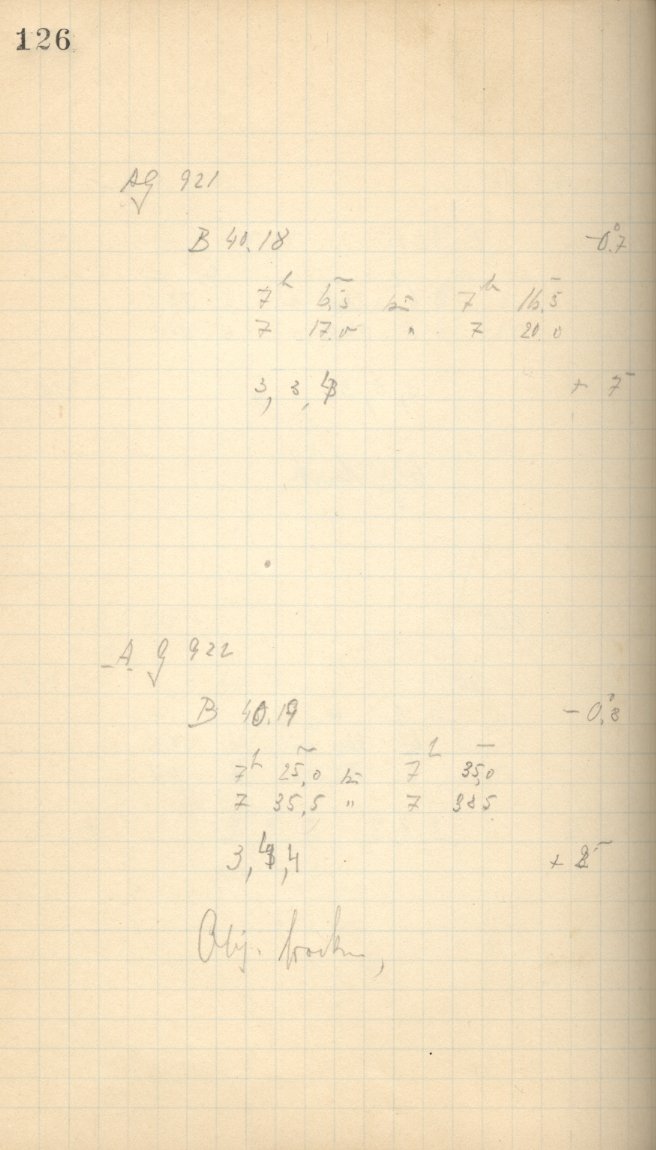 126
AG 921
B 40.18 -0°.7
7h 6,5 bis 7h 16,5
7 17.0 " 7 20 0
3, 3, 4 + 7
AG 922
B 40.19 -0°,8
7h 25,0 bis 7h 35,0
7 35,5 " 7 38 5
3, 4, 4 + 2
Obj. trocken,